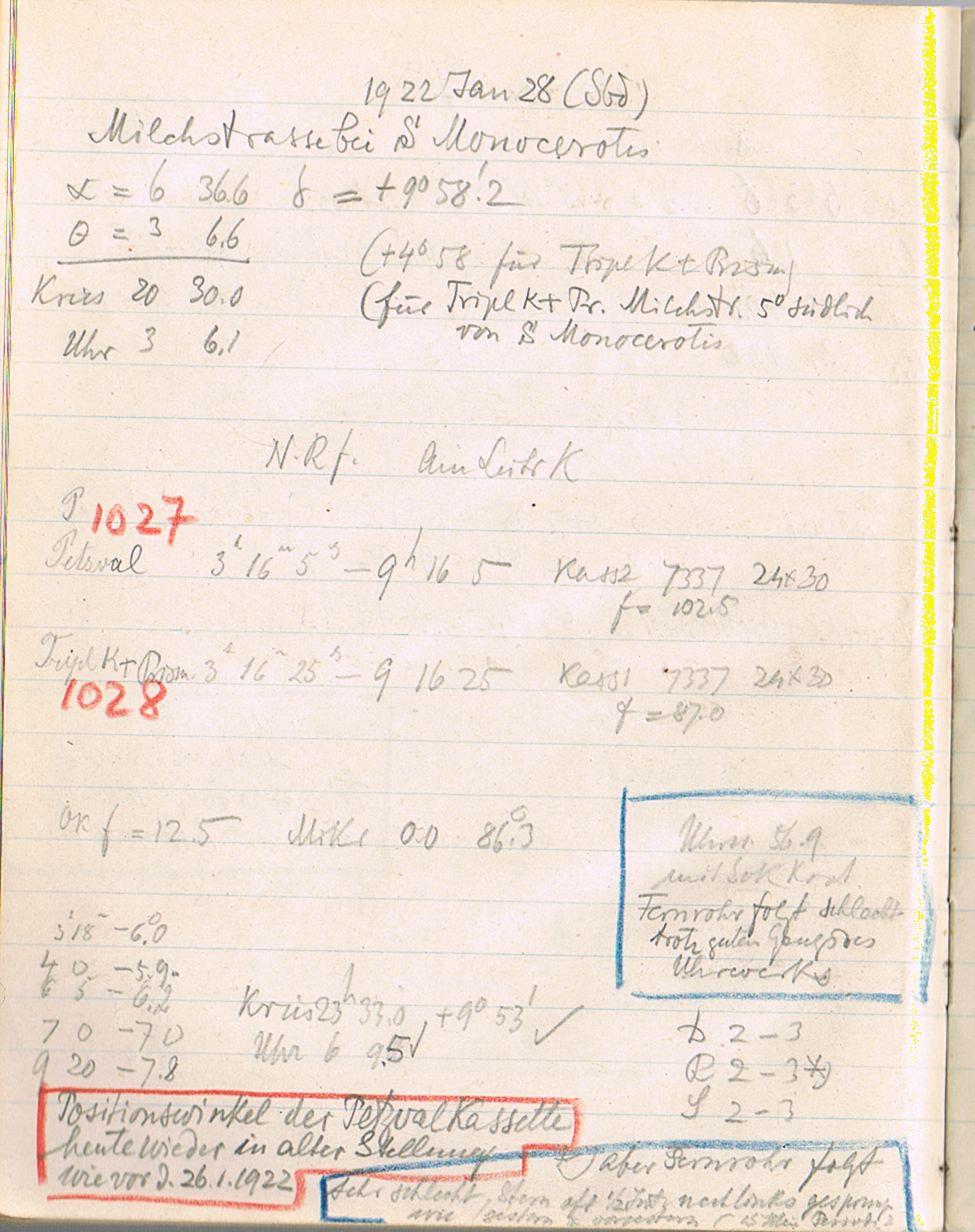 1922 Jan 28 (Sbd)
Milchstrasse bei S Monocerotis
α = 6 36.6 δ = +9° 58'.2
θ = 3 6.6
(+4° 58 für Tripl K + Prism)
Kreis 20 30.0
(für Tripl K + Pr. Milchstr. 5° südlich
von S Monocerotis
Uhr 3 6.1
N. R f. Am Leitr K
P 1027
Petzval 3h 16m 5s – 9h 16 5 Kass 2 7337 24×30
f = 102.5
Tripl K + Prism 3h 16m 25s – 9 16 25 Kass 1 7337 24×30
1028
f = 87.0
Ok f = 12.5 Mikr 0.0 86°.3
Uhrr. 56.9
mit Sek Kont.
Fernrohr folgt schlecht
trotz guten Ganges des
Uhrwerks
3h 18m –6°.0
4 0 –5.9
6 5 –6.2
7 0 –7.0
9 20 –7.8
Kreis 23h 33.0 +9° 53' ✓
Uhr 6 9.5 ✓
D 2–3
R 2–3 *)
S 2–3
Positionswinkel der Petzval Kassette
heute wieder in alter Stellung
wie vor d. 26.1.1922
*) aber Fernrohr folgt
sehr schlecht, Stern oft nach links
wie gestern vorgestern